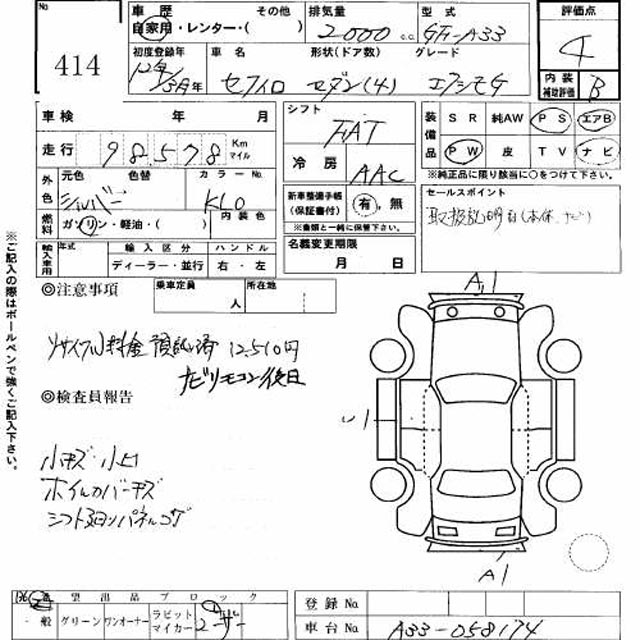 No 414
車歴 その他
自家用・レンター・( )
排気量 2000 c.c.
型式 GF-A33
評価点 4
初度登録年 12年 3月
車名 セフィロ
形状(ドア数) セダン(4)
グレード
内装補助評価 B
車検 年 月
走行 98,578 Km マイル
シフト FAT
冷房 AAC
装備品 SR 純AW PS エアB
PW 皮 TV ナビ
※純正品に限り該当に○をつけて下さい。
外色 元色 色替 カラーNo.
シルバー KL0
燃料 ガソリン・軽油・( ) 内装色
新車整備手帳(保証書付) 有,無
※書類と一緒に保管下さい。
セールスポイント
取扱説明書(本体、ナビ)
輸入車用 年式 輸入区分 ハンドル
ディーラー・並行 右・左
名義変更期限
月 日
※ご記入の際はボールペンで強くご記入下さい。
◎注意事項
乗車定員 人 所在地
リサイクル料金預託済 12,510円
ナビリモコン後日
◎検査員報告
A1
小キズ・小凹
ホイルカバーキズ
A1
希望出品ブロック
一般 グリーン ワンオーナー ラビットマイカー ユーザー
登録No
車台No A33-058174